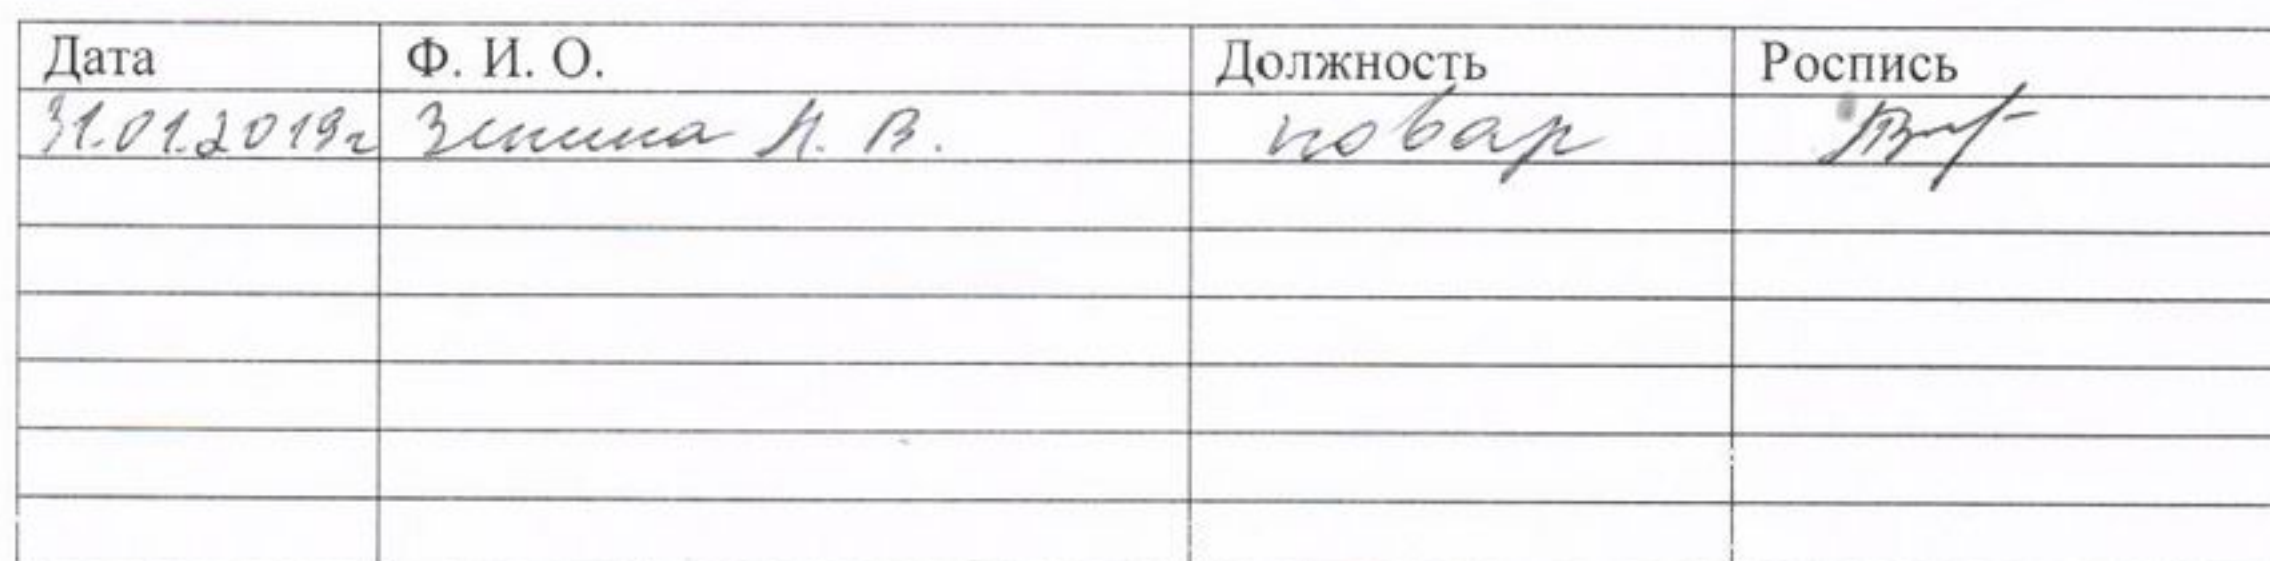 Дата Ф. И. О. Должность Роспись
31.01.2019г Зенина Н. В. повар